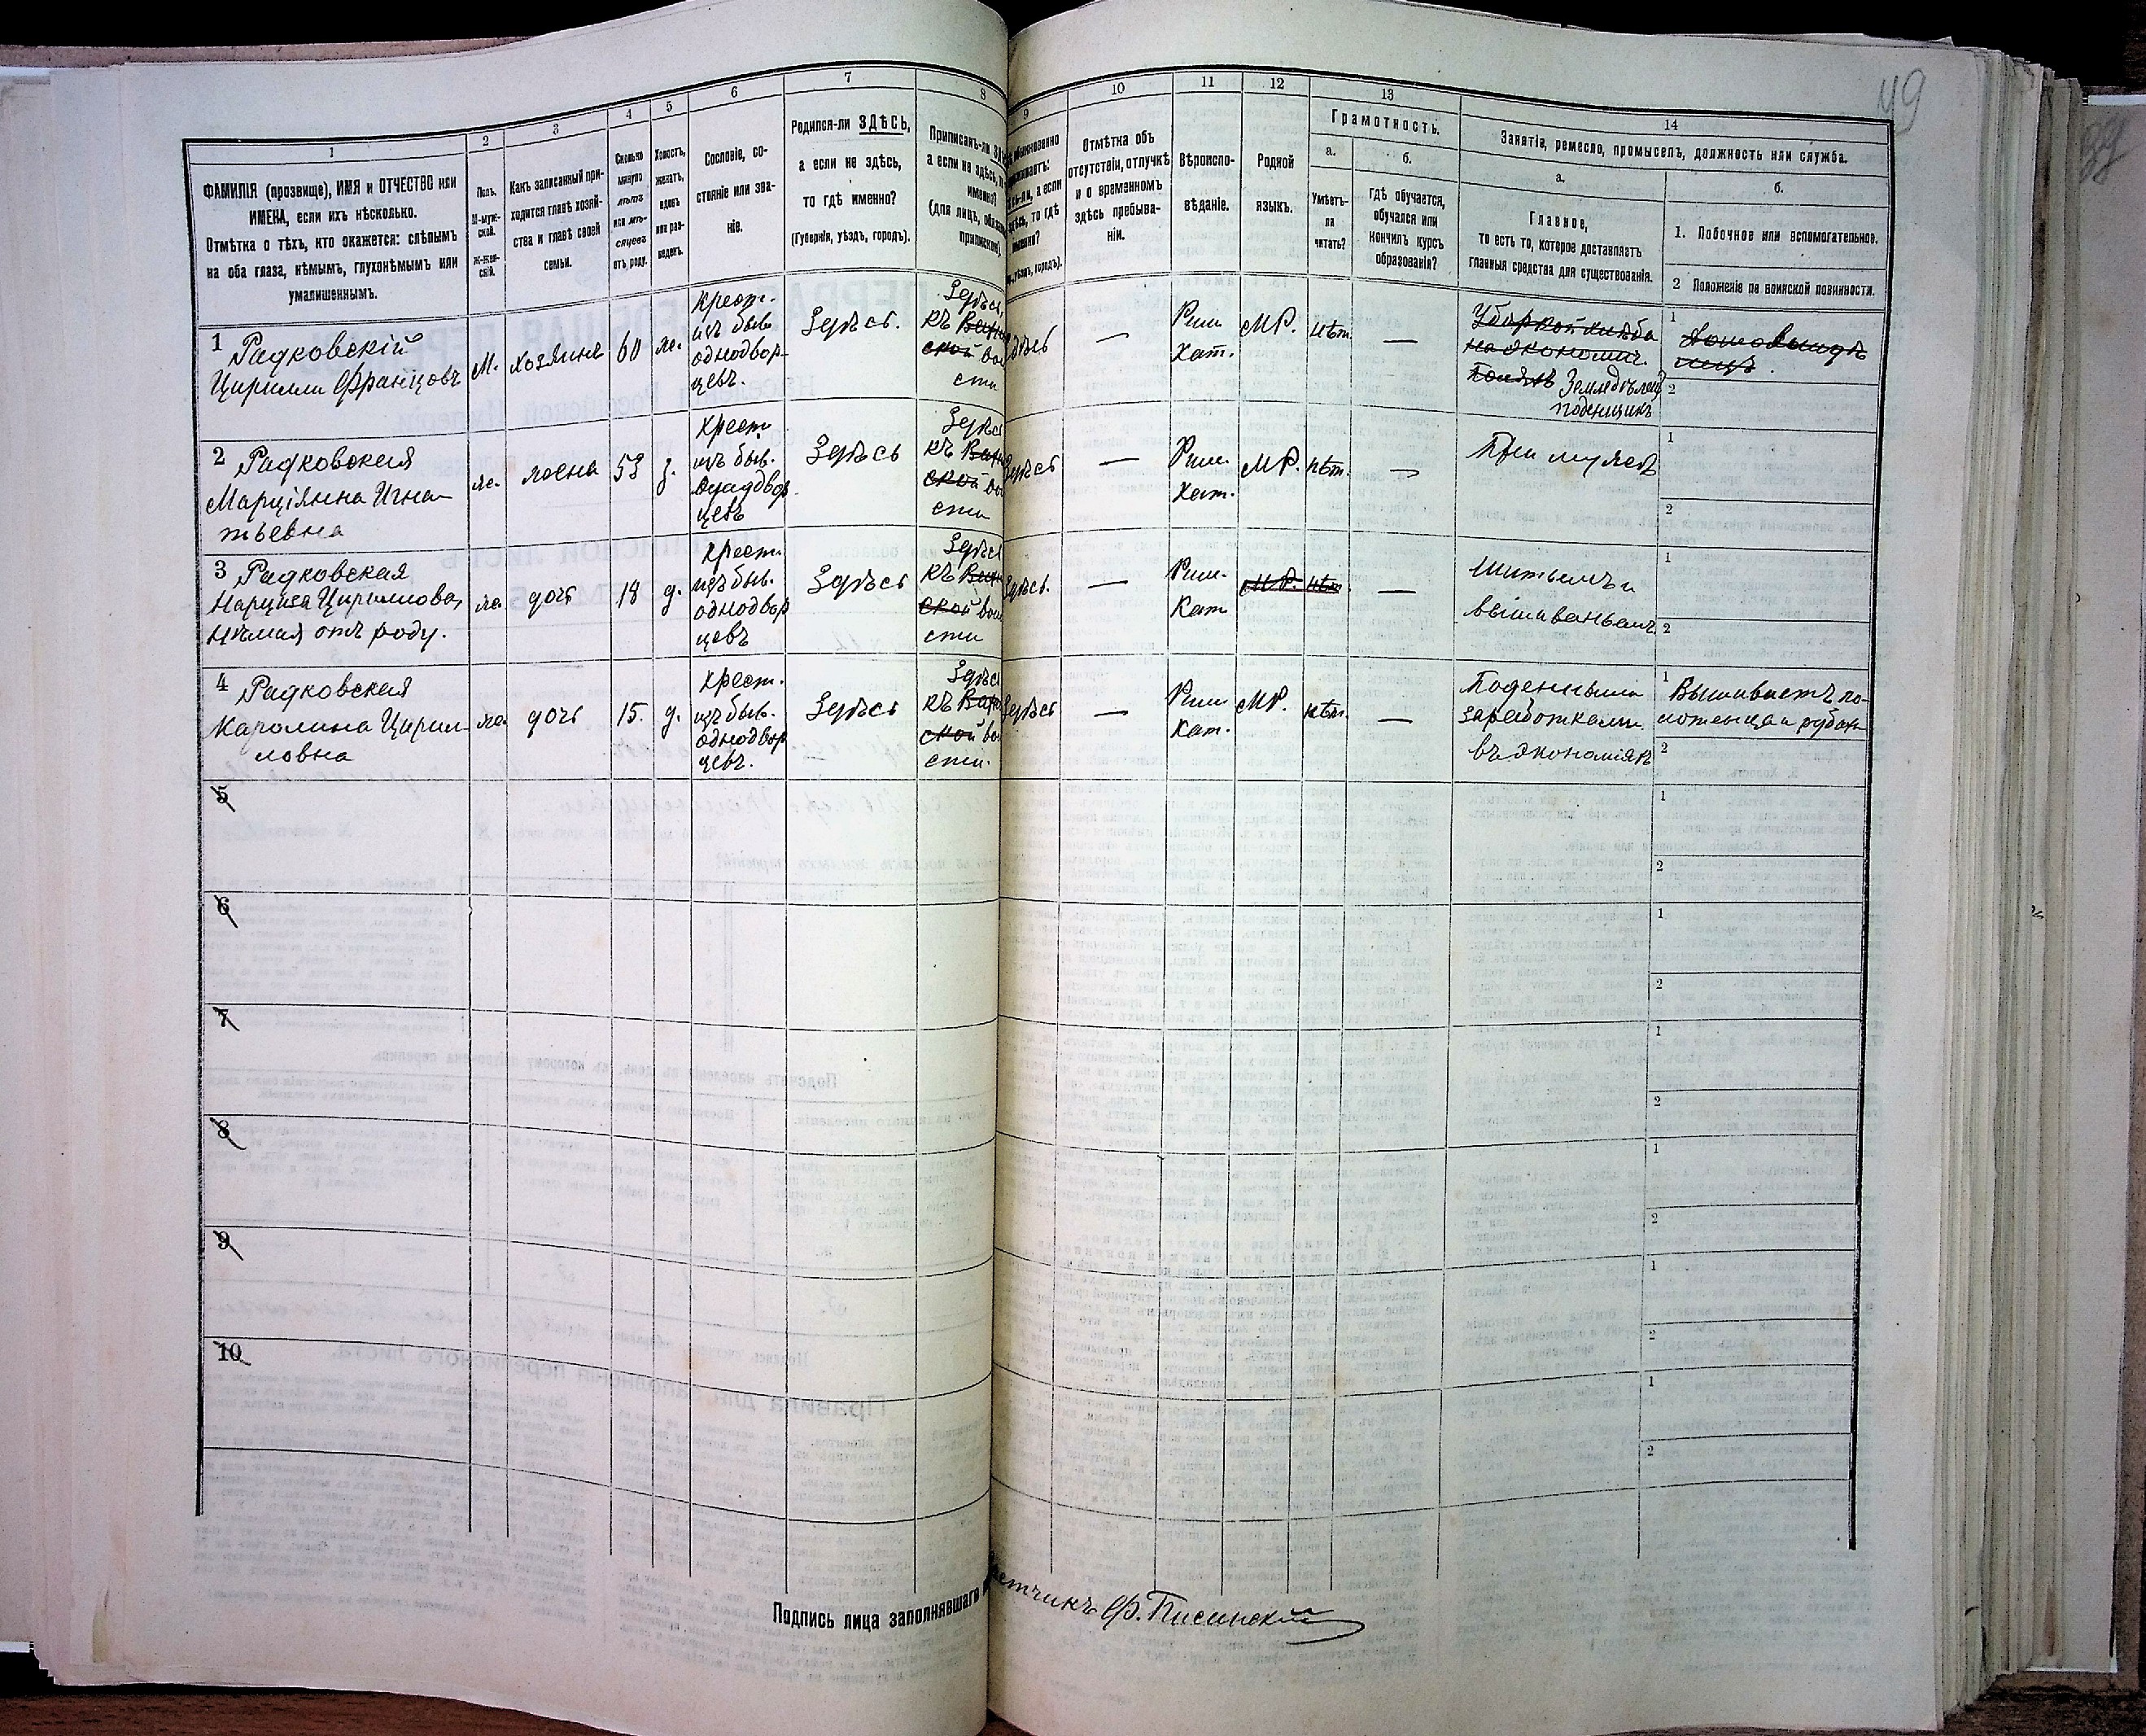 49
1
2
3
4
5
6
7
8
9
10
11
12
13
14
ФАМИЛІЯ (прозвище), ИМЯ и ОТЧЕСТВО или
ИМЕНА, если ихъ нѣсколько.
Отмѣтка о тѣхъ, кто окажется: слѣпымъ
на оба глаза, нѣмымъ, глухонѣмымъ или
умалишеннымъ.
Полъ.
М-муж-
ской.
ж-жен-
скій.
Какъ записанный при-
ходится главѣ хозяй-
ства и главѣ своей
семьи.
Сколько
минуло
лѣтъ
или мѣ-
сяцевъ
отъ роду.
Холостъ,
женатъ,
вдовъ
или раз-
веденъ.
Сословіе, со-
стояніе или зва-
ніе.
Родился-ли ЗДѢСЬ,
а если не здѣсь,
то гдѣ именно?
(Губернія, уѣздъ, городъ).
Приписанъ-ли
а если не здѣсь,
именно?
(для лицъ,
Отмѣтка объ
отсутствіи, отлучкѣ
и о временномъ
здѣсь пребыва-
ніи.
Вѣроиспо-
вѣданіе.
Родной
языкъ.
Грамотность.
а.
Умѣетъ-
ли
читать?
б.
гдѣ обучается,
обучался или
кончилъ курсъ
образованія?
Занятія, ремесло, промыселъ, должность или служба.
а.
Главное,
то есть то, которое доставляетъ
главныя средства для существованія.
б.
1. Побочное или вспомогательное.
2 Положеніе по воинской повинности.
1 Радковскій
Цириллъ Францовъ
М. хозяинъ 60 ж.
Крест.
изъ быв.
однодвор-
цевъ.
Здѣсь.
Здѣсь
къ
ской
сти
—
Рим.
Кат.
МР. нѣт. —
Уборкой хлѣба
на экономич.
поляхъ Земледѣлец
поденщикъ
1
2
2 Радковская
Марціянна Игна-
тьевна
ж. жена 53 з.
Крест.
изъ быв.
однодвор
цевъ
Здѣсь
Здѣсь
къ
ской
сти
—
Рим.
Кат.
МР. нѣт. —
При мужѣ
1
2
3 Радковская
Нарциза Цирилловна,
нѣмая отъ роду.
ж. дочь 18 д.
Крест.
изъ быв.
однодвор
цевъ
Здѣсь
Здѣсь
къ
ской
сти
—
Рим.
Кат
МР. нѣт. —
Шитьемъ и
вышиваньемъ
1
2
4 Радковская
Каролина Цирил-
ловна
ж. дочь 15. д.
Крест.
изъ быв.
однодвор
цевъ.
Здѣсь
Здѣсь
къ
ской
сти.
—
Рим.
Кат.
МР. нѣт. —
Поденными
заработками
въ экономіяхъ
1 Вышиваетъ по-
лотенца и рубахи
2
5
1
2
6
1
2
7
1
2
8
1
2
9
1
2
10
1
2
Подпись лица заполнявшаго